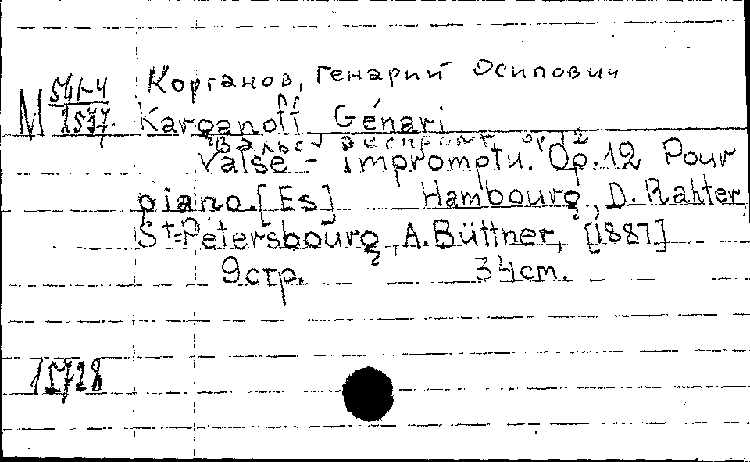 Корганов, Генарий Осипович
М 541-4
1577.
Karganoff Génari
Вальс экспромт ор 12
Valse - impromptu. Op. 12 Pour
piano. [Es] Hambourg, D. Rahter,
St-Petersbourg, A. Büttner, [1887]
9 стр. 34 cm.
15728